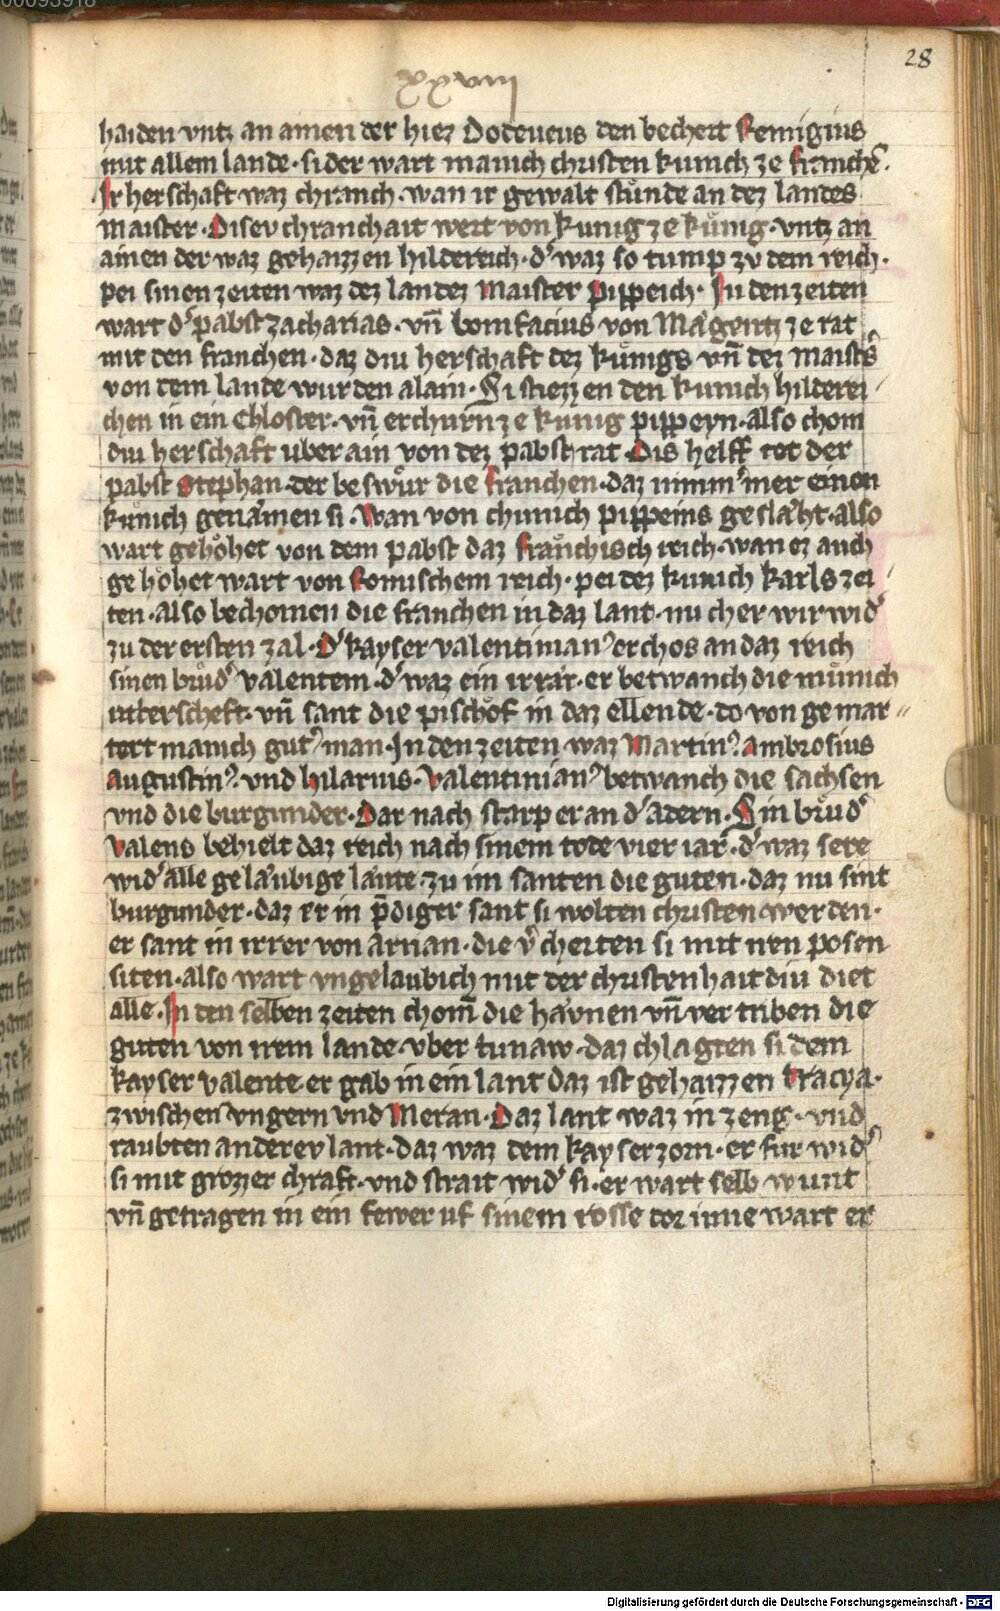 00093918
28
xxviij
haiden vntz an ainen der hiez Dodeueus den bechert Remigius
mit allem lande · sider wart manich christen kunich ze franchē.
Ir herschaft waz chranch · wan ir gewalt stuͤnde an dez landes
maister · Disev chranchait wert von kunig ze kuͤnig · vntz an
ainen der waz gehaizzen hildereich · dˀ waz so tump zv dem reich ·
pei sinen zeiten waz dez landez maister pippeich · In den zeiten
wart dˀ pabst zacharias · vn̄ bonifacius von Maͤgentz ze rat
mit den franchen · daz diu herschaft dez kuͤnigs vn̄ dez maistˀs
von dem lande wurden alain · Si stiezzen den kunich hilderei /
chen in ein chloster · vn̄ erchurn ze kunig pippeyn · also chom
diu herschaft uber ain von dez pabst rat · Dis helff tet der
pabst stephan · der beswuͦr die franchen · daz nimmˀmer einen
kuͤnich genaͤmen si · Wan von chunich pippeins geslaͤht · also
wart gehoͤhet von dem pabst daz fraͤnchisch reich · wan ez auch
gehoͤhet wart von Romischem reich · pei dez kunich karls zei /
ten · also bechomen die franchen in daz lant · nu cher wir widˀ
zu der ersten zal · Dˀ kayser valentinianˀ erchos an daz reich
sinen bruͦdˀ valentem · dˀ waz ein irrar · er betwanch die muͤnich
ritterscheft · vn̄ sant die pischoͤf in daz ellende · do von gemar //
tert manich gutˀ man · In den zeiten waz Martinˀ ambrosius
augustinˀ · vnd hilarius · valentinianˀ betwanch die sachsen
vnd die burgunder · Dar nach starp er an dˀ adern · Sin bruͦdˀ
valens behielt daz reich nach sinem tode vier iar · dˀ waz sere
widˀ alle gelaͤubige laͤute · zu im santen die guten · daz nu sint
burgunder · daz er in p̄diger sant si wolten christen werden ·
er sant in irrer von arrian · die v̄cherten si mit iren posen
siten · also wart vngelaubich mit der christenhait diu diet
alle · In den selben zeiten chom̄ die haͤvnen vn̄ vertriben die
guten von irem lande · vber tunaw · daz chlagten si dem
kayser valente · er gab in ein lant daz ist gehaizzen tracya ·
zwischen vngern vnd Meran · Daz lant waz in zeng · vnd
raubten anderev lant · daz waz dem kayser zorn · er fur widˀ
si mit grozzer chraft · vnd strait widˀ si · er wart selb wunt
vn̄ getragen in ein fewer uf sinem rosse dor inne wart er
Digitalisierung gefördert durch die Deutsche Forschungsgemeinschaft - DFG